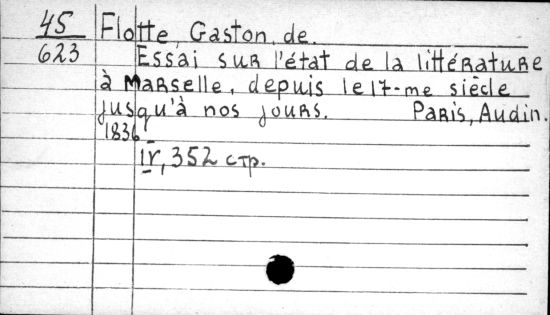 45 Flotte, Gaston, de.
623 Essai sur l'état de la littérature
à Marselle, depuis le 17-me siècle
jusqu'à nos jours. Paris, Audin.
1836
352 стр.